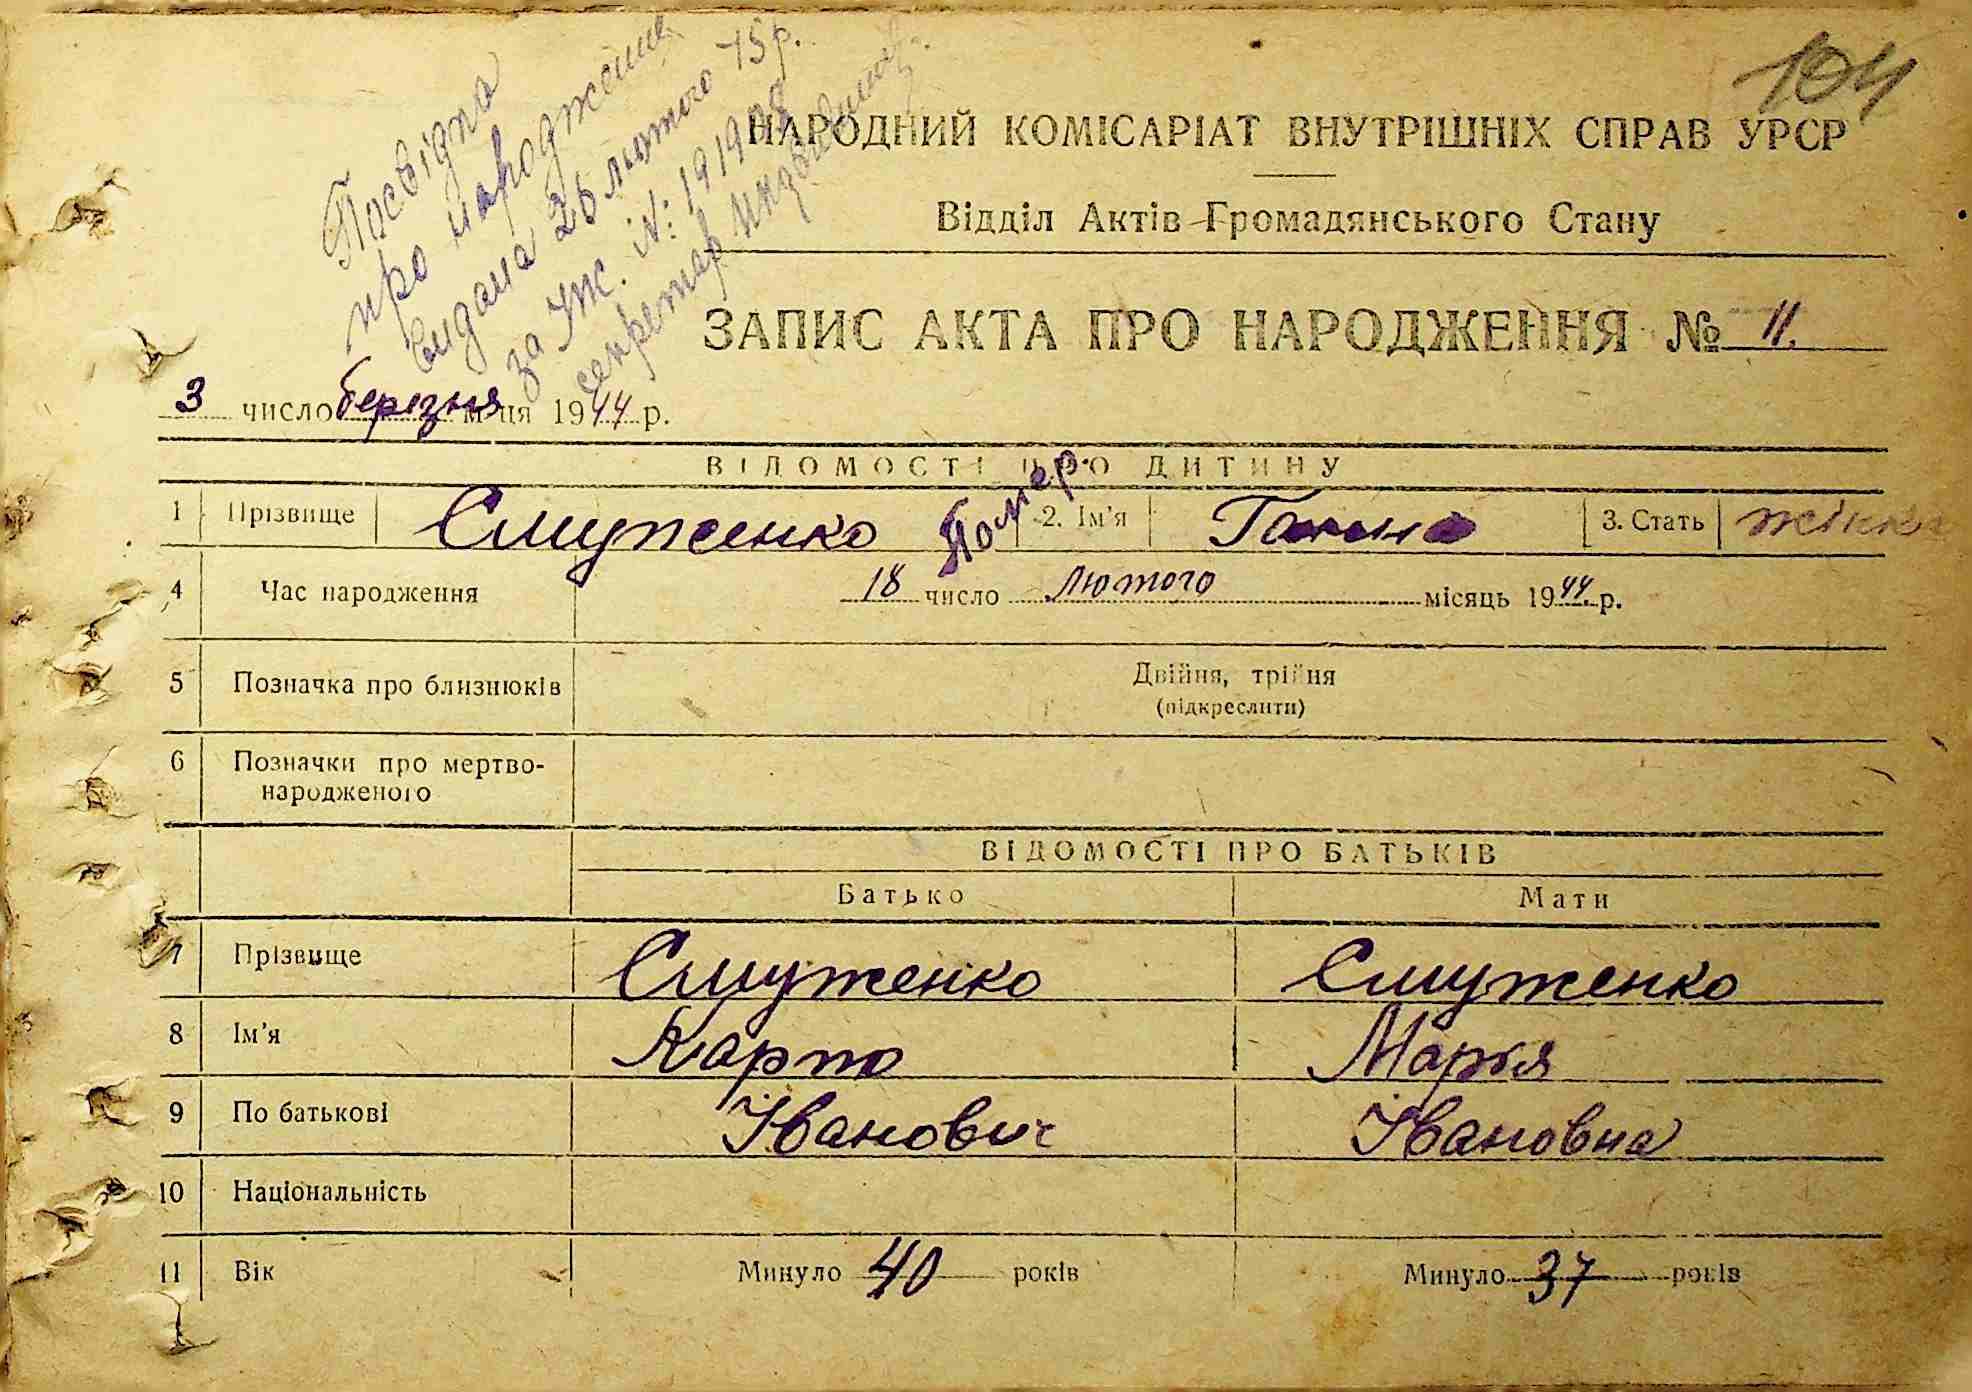 104
Посвідка
про народження
видана 26 лютого 45 р.
за УЖ. №: 191908
секретар
НАРОДНИЙ КОМІСАРІАТ ВНУТРІШНІХ СПРАВ УРСР
Відділ Актів Громадянського Стану
ЗАПИС АКТА ПРО НАРОДЖЕННЯ № 11.
3 число березня м-ця 1944 р.
ВІДОМОСТІ ПРО ДИТИНУ
Помер
1 Прізвище Смуженко 2. Ім'я Ганна 3. Стать жінка
4 Час народження 18 число лютого місяць 1944. р.
5 Позначка про близнюків Двійня, трійня
(підкреслити)
6 Позначки про мертво-
народженого
ВІДОМОСТІ ПРО БАТЬКІВ
Батько Мати
7 Прізвище Смуженко Смуженко
8 Ім'я Карпо Марья
9 По батькові Іванович Івановна
10 Національність
11 Вік Минуло 40 років Минуло 37 років